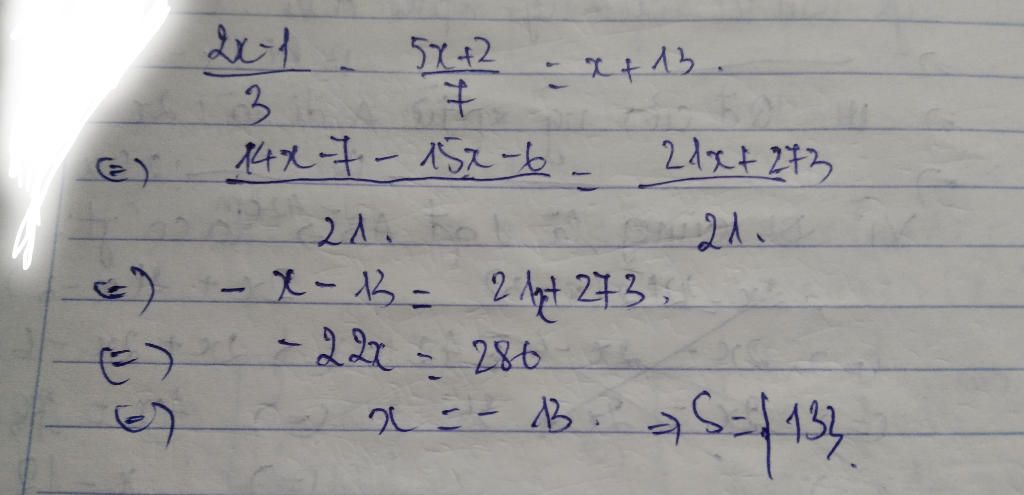 (2x-1)/3 - (5x+2)/7 = x + 13.
⇔) (14x - 7 - 15x - 6)/21. = (21x + 273)/21.
⇔) - x - 13 = 21x + 273.
⇔) - 22x = 286
⇔) x = - 13. ⇒ S = {13}.